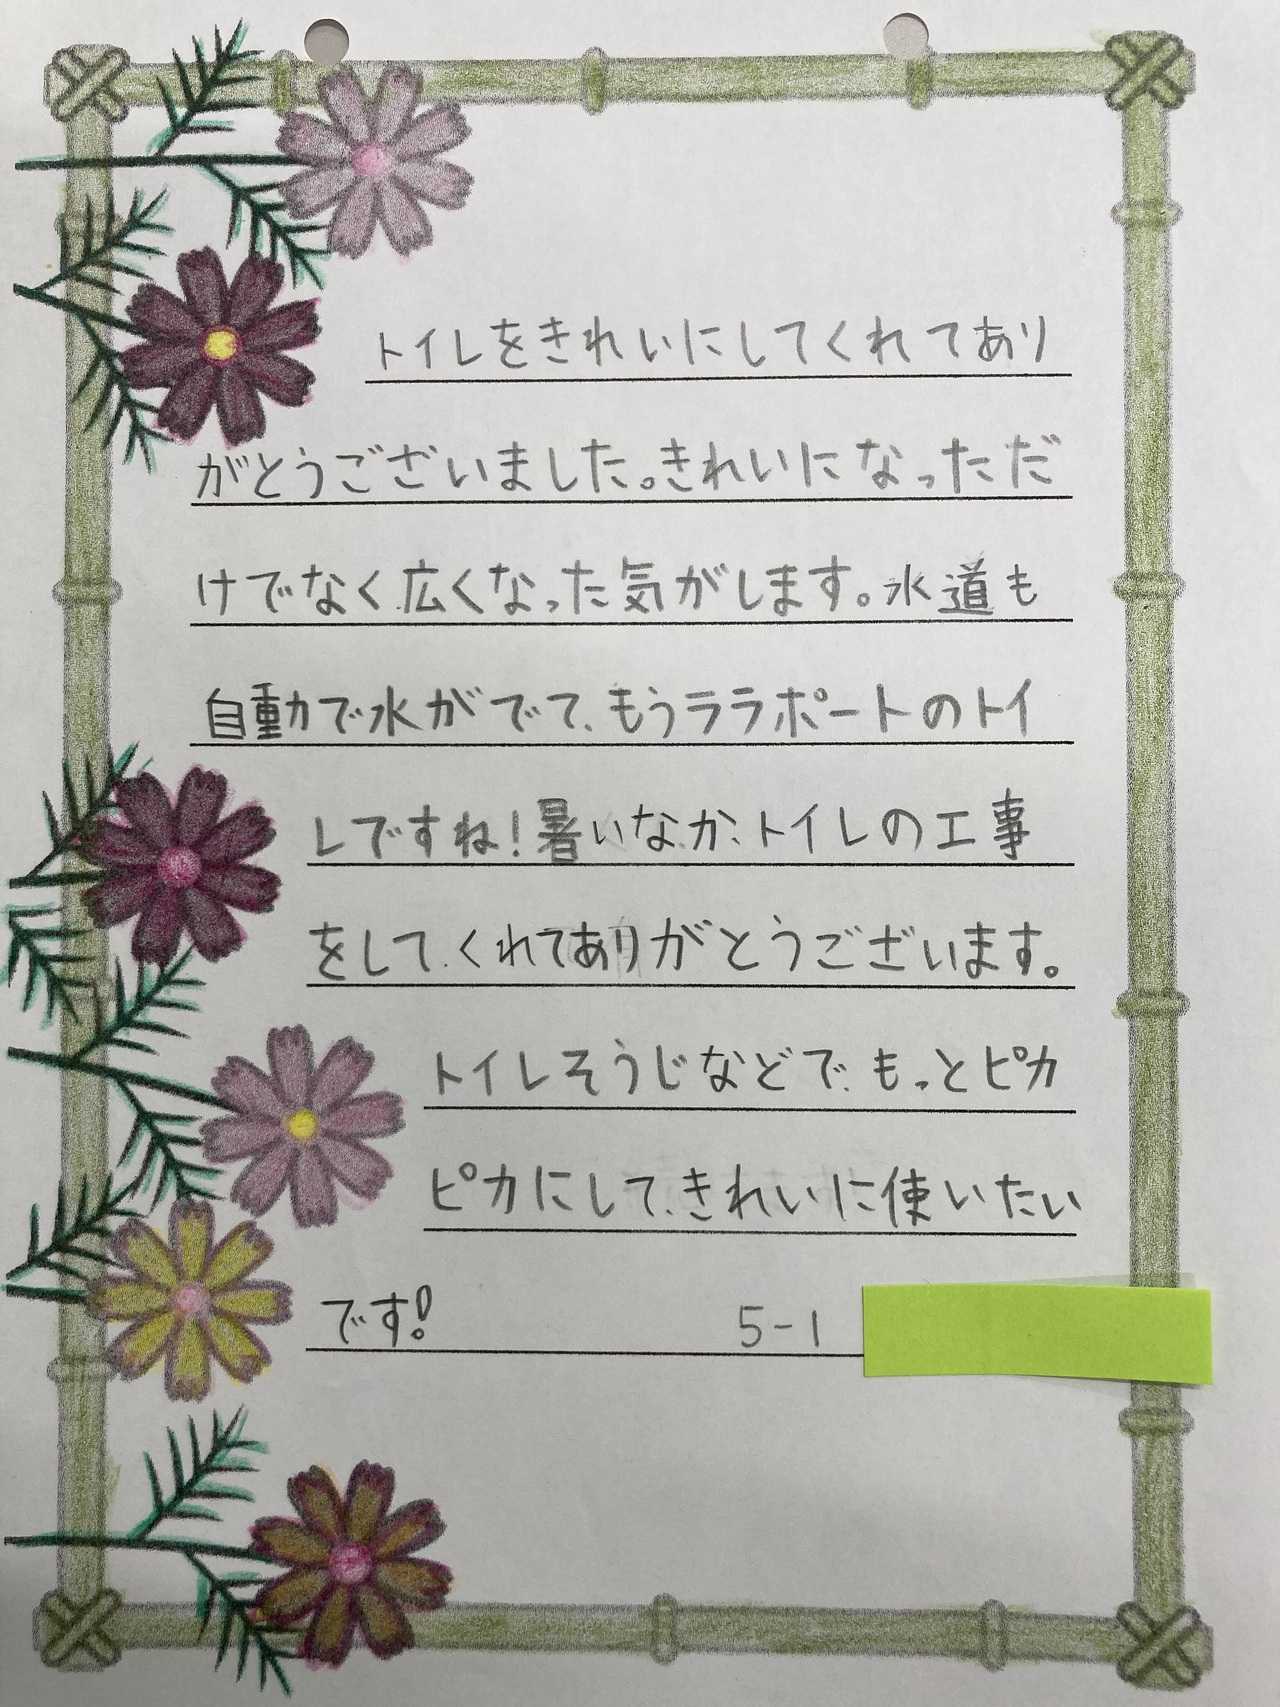 トイレをきれいにしてくれてあり
がとうございました。きれいになっただ
けでなく広くなった気がします。水道も
自動で水がでて、もうララポートのトイ
レですね!暑いなか、トイレの工事
をして、くれてありがとうございます。
トイレそうじなどで、もっとピカ
ピカにして、きれいに使いたい
です!
5-1